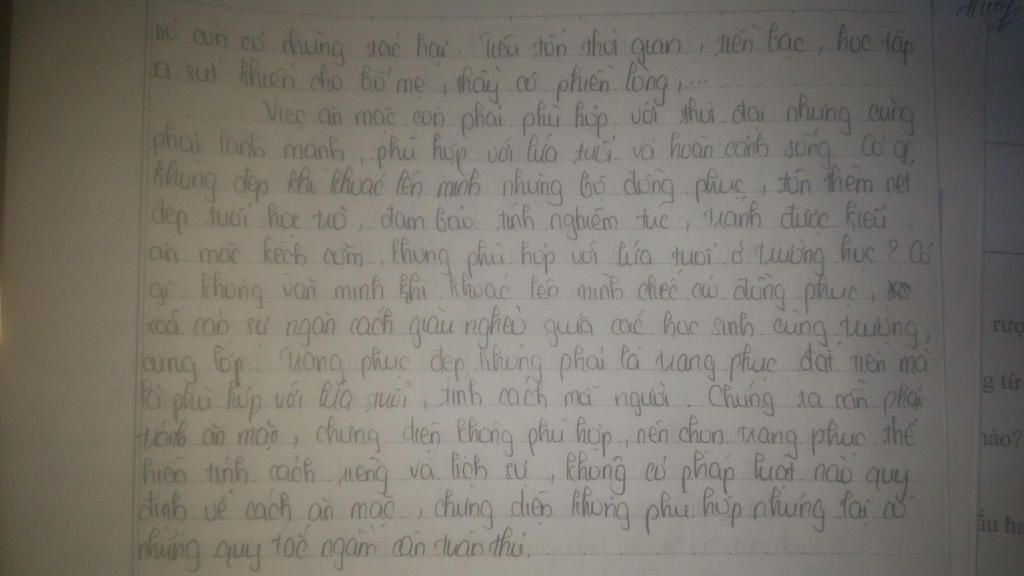 nó còn có những tác hại. Tiêu tốn thời gian, tiền bạc, học tập
sa sút khiến cho bố mẹ, thầy cô phiền lòng,...
Việc ăn mặc còn phải phù hợp với thời đại nhưng cũng
phải lành mạnh, phù hợp với lứa tuổi và hoàn cảnh sống. Có gì
không đẹp khi khoác lên mình những bộ đồng phục, tôn thêm nét
đẹp tuổi học trò, đảm bảo tính nghiêm túc, tránh được kiểu
ăn mặc kệch cỡm, không phù hợp với lứa tuổi ở trường học? Có
gì không văn minh khi khoác lên mình chiếc áo đồng phục,
xoá cản sự ngăn cách giàu nghèo giữa các học sinh cùng trường,
cùng lớp. Trang phục đẹp không phải là trang phục đắt tiền mà
là phù hợp với lứa tuổi, tính cách mỗi người. Chúng ta cần phải
tránh ăn mặc, chưng diện không phù hợp, nên chọn trang phục thể
hiện tính cách riêng và lịch sự, không có pháp luật nào quy
định về cách ăn mặc, chưng diện không phù hợp nhưng lại có
những quy tắc ngầm cần tuân thủ.
rượ
g từ
nào?
ấu ha